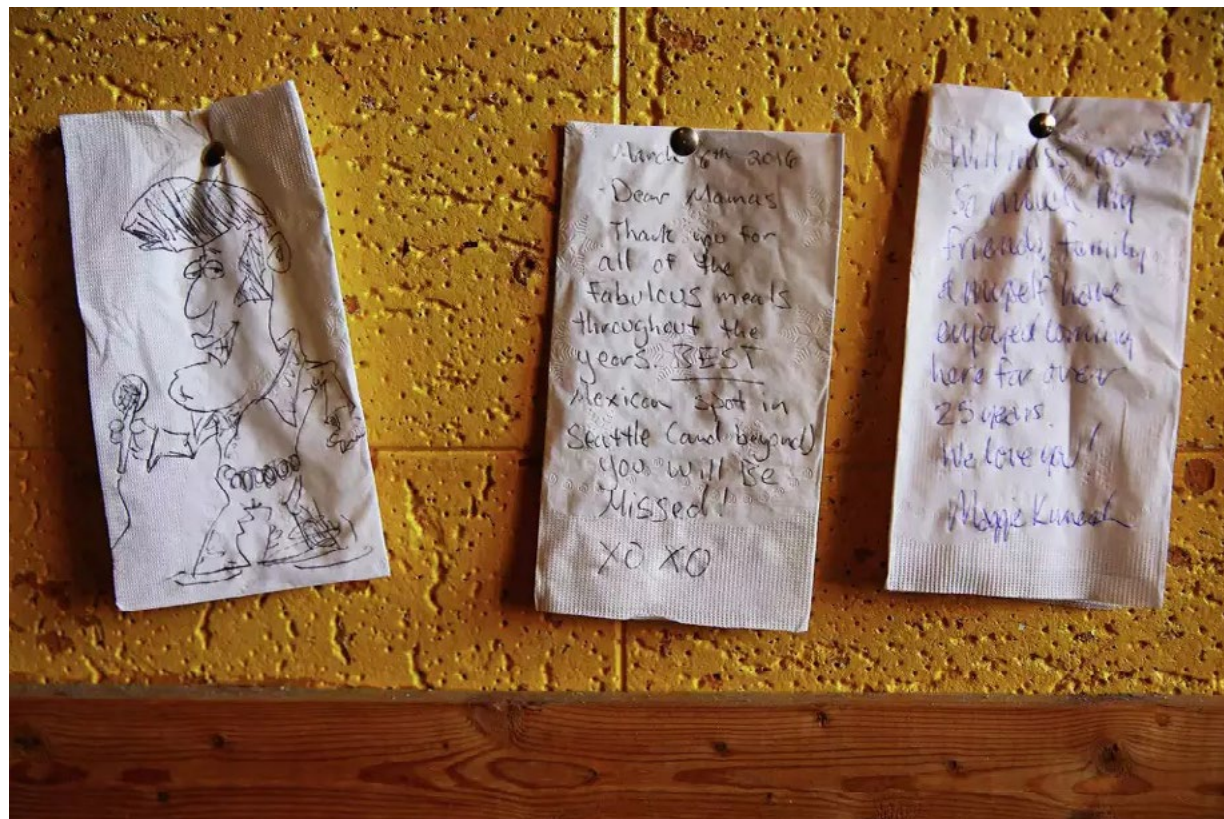 March 8th 2016
Dear Mamas
Thank you for
all of the
fabulous meals
throughout the
years. BEST
Mexican spot in
Seattle (and beyond)
you will Be
Missed!
XO XO
Will miss you
So much. My
friends, family,
& myself have
enjoyed coming
here for over
25 years.
We love you!
Maggie